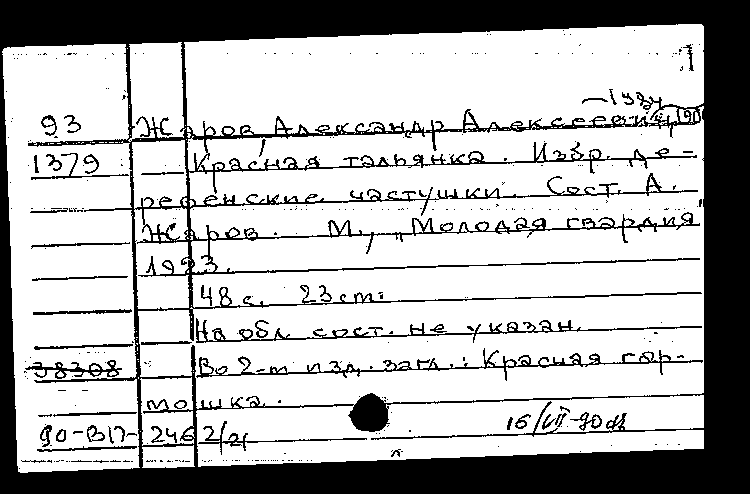 1
93 Жаров, Александр Алексеевич,
1379 Красная тальянка. Избр. де-
ревенские частушки. Сост. А.
Жаров. М., „Молодая гвардия"
1923.
48 с. 23 cm.
На обл. сост. не указан.
38308 Во 2-m изд. загл.: Красная гар-
мошка.
90-ВП- 246 2/21 16/VII-70